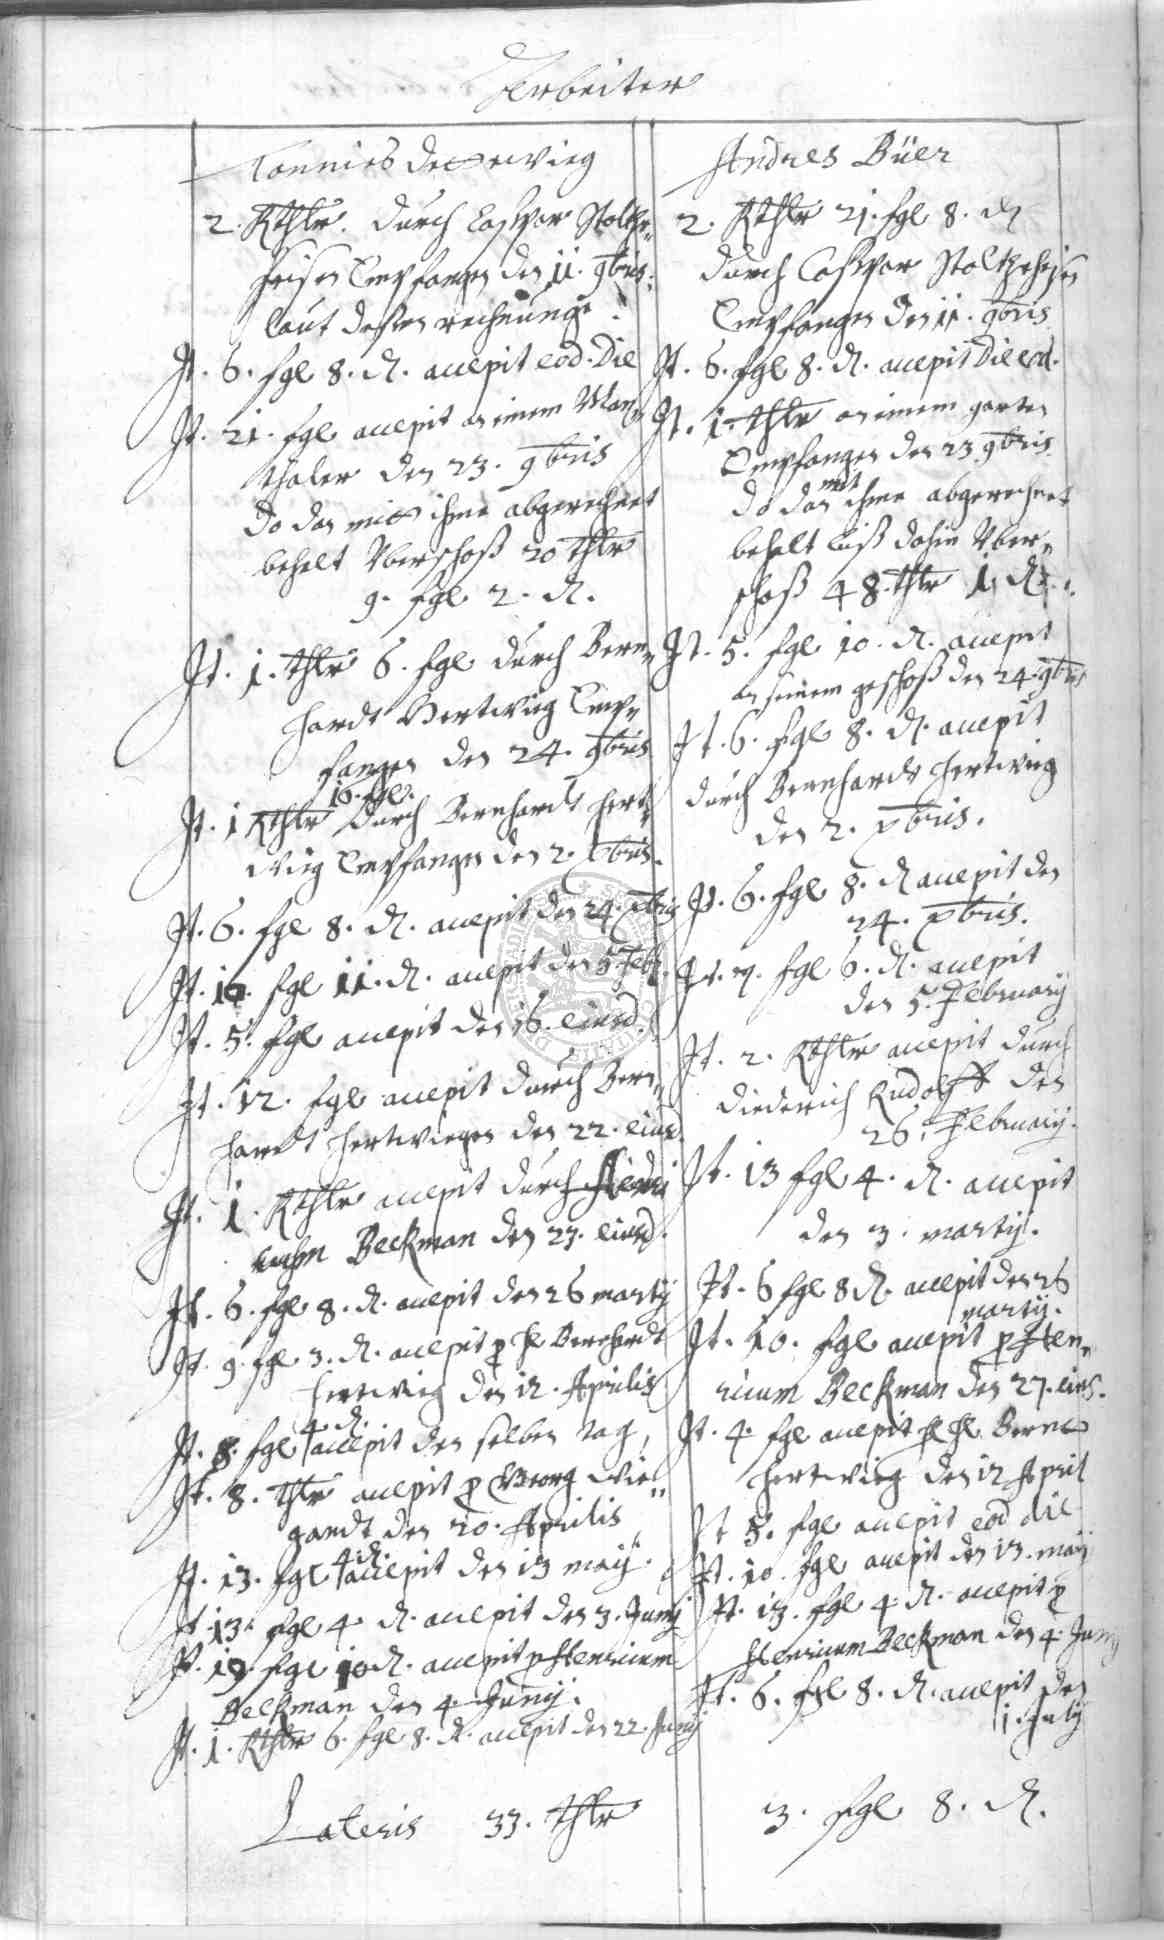 Arbeiter
Tönnies Dettewieg
2. Rthlr. durch Caspar Stoltze¬
heisen Empfangen den 11. 9bris.
laut dessen rechnunge.
It. 6. sgl 8. d. accepit eod. die
It. 21. sgl accepit an einem
thaler den 23. 9bris
do dan mitt ihme abgerechnet
behelt Uberschoß 20 thlr
9. sgl 2. d.
It. 1. thlr 6. sgl durch Bern¬
hardt Hertwieg Emp¬
fangen den 24. 9bris
16. sgl.
It. 1 Rthlr durch Bernhardt Hert¬
wieg Empfangen den 2. Xbris.
It. 6. sgl 8. d. accepit den 24. Xbris
It. 10. sgl 11. d. accepit den 5. Feb.
It. 5. sgl accepit den 16. eiusd.
It. 12. sgl accepit durch Bern¬
hardt Hertwiegen den 22. eiusd.
It. 1. Rthlr accepit durch
Beckman den 23. eiusd.
It. 6. sgl 8. d. accepit den 26 martij
It. 9. sgl 3. d. accepit p H Bernhardt
Hertwieg den 12. Aprilis
4. d.
It. 8. sgl accepit den selben tag,
It. 8. thlr accepit p Georg Wie¬
gandt den 20. Aprilis
4 d.
It. 13. sgl accepit den 13 maij.
It. 13. sgl 4. d. accepit den 3. Junij
It. 19. sgl 10 d. accepit p Henricum
Beckman den 4. Junij.
It. 1. Rthlr 6. sgl 8. d. accepit den 22. Junij
Andres Büer
2. Rthlr 21. sgl 8. d
durch Caspar Stoltzeheisen
Empfangen den 11. 9bris
It. 6. sgl 8. d. accepit die eod.
It. 1. thlr an einem garten
Empfangen den 23 9bris.
do dan mit ihme abgerechnet
behelt biß dahin Uber¬
schoß 48. thlr 1 d.
It. 5. sgl 10. d. accepit
an seinem geschoß den 24. 9bris
It. 6. sgl 8. d. accepit
durch Bernhardt Hertwieg
den 2. Xbris.
It. 6. sgl 8. d accepit den
24. Xbris.
It. 7. sgl 6. d. accepit
den 5. February
It. 2. Rthlr accepit durch
Diederich Rudolff den
26. February.
It. 13 sgl 4. d. accepit
den 3. martij.
It. 6 sgl 8 d. accepit den 26
martij.
It. 10. sgl accepit p Hen¬
ricum Beckman den 27. eius.
It. 4. sgl accepit Bernt
Hertwieg den 12 April
It 5. sgl accepit eod die
It. 10. sgl accepit den 13. maij
It. 13. sgl 4. d. accepit p
Henricum Beckman den 4. Junij
It. 6. sgl 8. d. accepit den
1. July
Lateris 33. thlr 3. sgl 8. d.